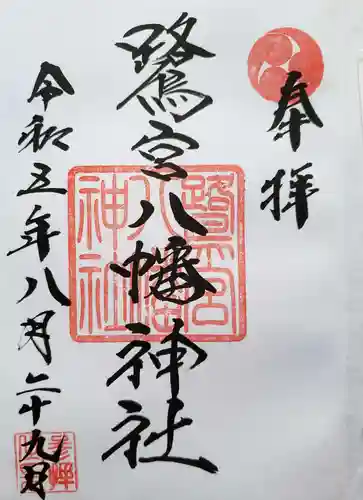 奉拝
鷺宮八幡神社
鷺宮八幡神社
令和五年八月二十九日